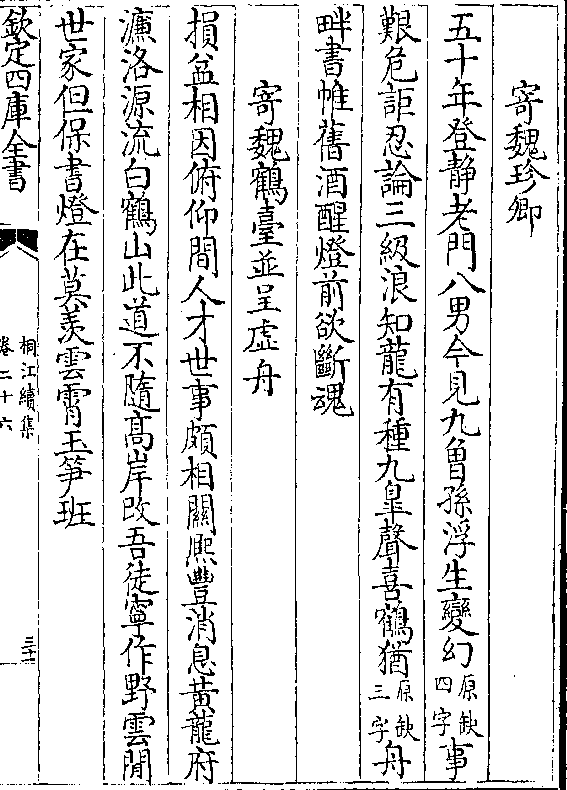 寄魏珍卿
五十年登静老門八男今見九曾孫浮生變幻原缺四字事
艱危詎忍論三級浪知龍有種九臯聲喜鶴猶原缺三字舟
畔書帷舊酒醒燈前欲斷魂
寄魏鶴臺並呈虚舟
損益相因俯仰間人才世事頗相關熈豐消息黄龍府
濂洛源流白鶴山此道不隨髙岸改吾徒寧作野雲閒
世家但保書燈在莫羨雲霄玉笋班
欽定四庫全書
桐江續集
卷二十六
三十一